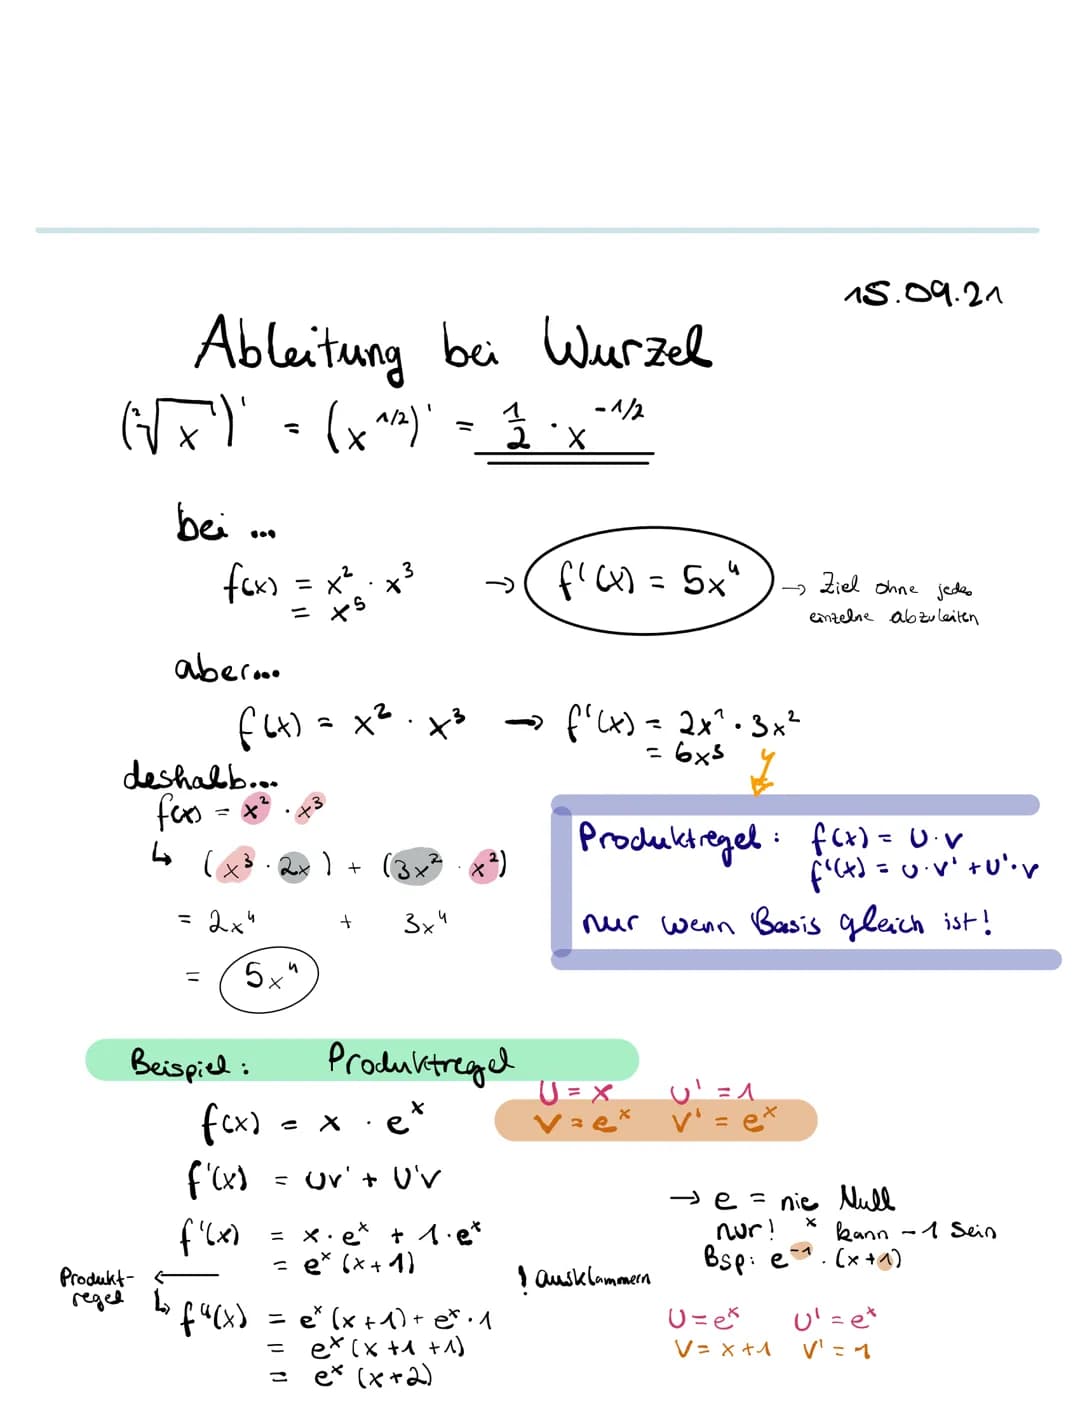 15.09.21
Ableitung bei Wurzel
(²√x)' = (x^1/2)' = 1/2 · x^-1/2
bei ...
f(x) = x² · x³ → f'(x) = 5x⁴ → Ziel ohne jedes
= x⁵ einzelne abzuleiten
aber...
f(x) = x² · x³ → f'(x) = 2x¹ · 3x²
= 6x³
deshalb...
f(x) = x² · x³
↳ (x³ · 2x) + (3x² · x²)
= 2x⁴ + 3x⁴
= 5x⁴
Produktregel: f(x) = u·v
f'(x) = u·v' + u'·v
nur wenn Basis gleich ist!
Beispiel: Produktregel
f(x) = x · e^x
U = x U' = 1
V = e^x V' = e^x
f'(x) = Uv' + U'v
f'(x) = x · e^x + 1 · e^x
= e^x (x+1)
! ausklammern
→ e = nie Null
nur! x kann -1 sein
Bsp: e^-1 · (x+1)
Produkt-
regel
↳ f"(x) = e^x (x+1) + e^x · 1
= e^x (x+1+1)
= e^x (x+2)
U = e^x U' = e^x
V = x+1 V' = 1